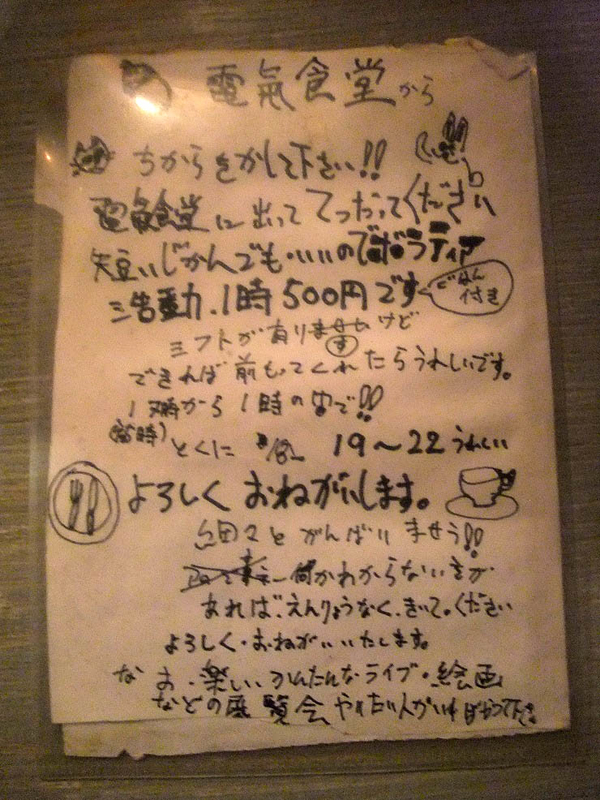 電氣食堂から
ちからをかして下さい!!
電気食堂に出って てつだってください
短いじかんでも・いいのでボラティア
活動.1時500円です
ごはん付き
シフトが有りますけど
できれば前もってくれたらうれしいです。
1時の 中で!!
とくに 19〜22 うれしい
よろしく おねがいします。
細々と がんばり ませう!!
何かわからない が
あれば、えんりょうなく、きいて。ください
よろしく・おねがいいたします。
なお・楽しい かんたんな ライブ・絵画
などの展覧会 やりたい人がいれば